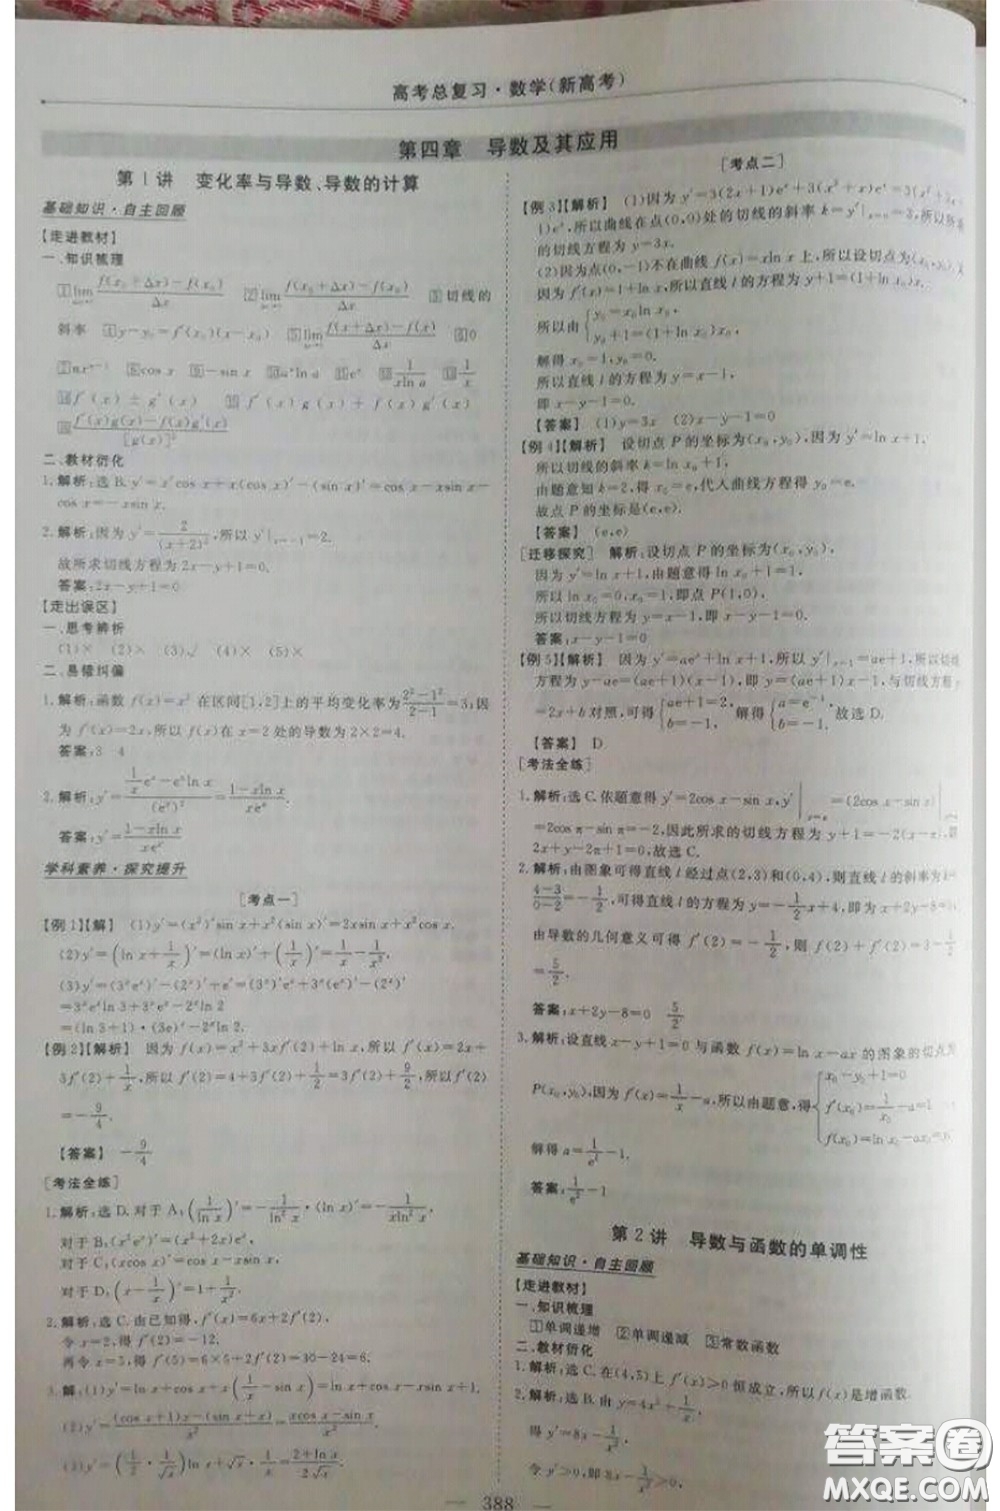 高考总复习·数学(新高考)
第四章 导数及其应用
第1讲 变化率与导数、导数的计算
基础知识·自主回顾
【走进教材】
一、知识梳理
③切线的
斜率 ④y-y₀=f'(x₀)(x-x₀)
二、教材衍化
1.解析:选B.y'=x'cos x+x(cos x)'-(sin x)'=cos x-xsin x-
cos x=-xsin x.
2.解析:因为y'=2/(x+2)²,所以y'|ₓ₌₋₁=2.
故所求切线方程为2x-y+1=0.
答案:2x-y+1=0
【走出误区】
一、思考辨析
(1)× (2)× (3)√ (4)× (5)×
二、易错纠偏
1.解析:函数f(x)=x²在区间[1,2]上的平均变化率为(2²-1²)/(2-1)=3;因
为f'(x)=2x,所以f(x)在x=2处的导数为2×2=4.
答案:3 4
2.解析:y'=((1/x)eˣ-eˣln x)/(eˣ)²=(1-xln x)/(xeˣ).
答案:y'=(1-xln x)/(xeˣ)
学科素养·探究提升
[考点一]
【例1】【解】 (1)y'=(x²)'sin x+x²(sin x)'=2xsin x+x²cos x.
(2)y'=(ln x+1/x)'=(ln x)'+(1/x)'=1/x-1/x².
(3)y'=(3ˣeˣ)'-(2ˣ)'+(e)'=(3ˣ)'eˣ+3ˣ(eˣ)'-(2ˣ)'
=3ˣeˣln 3+3ˣeˣ-2ˣln 2
=(ln 3+1)·(3e)ˣ-2ˣln 2.
【例2】【解析】 因为f(x)=x²+3xf'(2)+ln x,所以f'(x)=2x+
3f'(2)+1/x,所以f'(2)=4+3f'(2)+1/2=3f'(2)+9/2,所以f'(2)
=-9/4.
【答案】 -9/4
[考法全练]
1.解析:选D.对于A,(1/ln x)'=-1/ln²x·1/x=-1/(xln²x),
对于B,(x²eˣ)'=(x²+2x)eˣ;
对于C,(xcos x)'=cos x-xsin x;
对于D,(x-1/x)'=1+1/x².
2.解析:选C.由已知得,f'(x)=6x+2f'(2),
令x=2,得f'(2)=-12.
再令x=5,得f'(5)=6×5+2f'(2)=30-24=6.
(2)y'=((cos x+1)x-(sin x+x))/x²=(xcos x-sin x)/x².
388
[考点二]
【例3】【解析】 (1)因为y'=3(2x+1)eˣ+3(x²+x)eˣ=3(x²+
1)eˣ,所以曲线在点(0,0)处的切线的斜率k=y'|ₓ₌₀=3,所以所
的切线方程为y=3x.
(2)因为点(0,-1)不在曲线f(x)=xln x上,所以设切点为(x₀,y₀).又
因为f'(x)=1+ln x,所以直线l的方程为y+1=(1+ln x₀)x.
所以由{y₀=x₀ln x₀, y₀+1=(1+ln x₀)x₀,
解得x₀=1,y₀=0.
所以直线l的方程为y=x-1,
即x-y-1=0.
【答案】 (1)y=3x (2)x-y-1=0
【例4】【解析】 设切点P的坐标为(x₀,y₀),因为y'=ln x+1,
所以切线的斜率k=ln x₀+1,
由题意知k=2,得x₀=e,代入曲线方程得y₀=e.
故点P的坐标是(e,e).
【答案】 (e,e)
[迁移探究] 解析:设切点P的坐标为(x₀,y₀),
因为y'=ln x+1,由题意得ln x₀+1=1,
所以ln x₀=0,x₀=1,即点P(1,0),
所以切线方程为y=x-1,即x-y-1=0.
答案:x-y-1=0
【例5】【解析】 因为y'=aeˣ+ln x+1,所以y'|ₓ₌₁=ae+1,所以切线
方程为y-ae=(ae+1)(x-1),即y=(ae+1)x-1,与切线方程
y=2x+b对照,可得{ae+1=2, b=-1, 解得{a=e⁻¹, b=-1, 故选D.
【答案】 D
[考法全练]
1.解析:选C.依题意得y'=2cos x-sin x,y'|ₓ₌π=(2cos x-sin x)|
=2cos π-sin π=-2,因此所求的切线方程为y+1=-2(x-π),即
2x+y-2π+1=0,故选C.
2.解析:由图象可得直线l经过点(2,3)和(0,4),则直线的斜率为k=
(4-3)/(0-2)=-1/2,可得直线l的方程为y=-1/2x+4,即为x+2y-8=0,
由导数的几何意义可得f'(2)=-1/2,则f(2)+f'(2)=3-1/2
=5/2.
答案:x+2y-8=0 5/2
3.解析:设直线x-y+1=0与函数f(x)=ln x-ax的图象的切点为
P(x₀,y₀),因为f'(x)=1/x-a,所以由题意,得{x₀-y₀+1=0, f'(x₀)=1/x₀-a=1, f(x₀)=ln x₀-ax₀=y₀
解得a=1/e²-1.
答案:1/e²-1
第2讲 导数与函数的单调性
基础知识·自主回顾
【走进教材】
一、知识梳理
①单调递增 ②单调递减 ③常数函数
二、教材衍化
1.解析:选C.在(4,5)上f'(x)>0恒成立,所以f(x)是增函数.
2.解析:选B.由y=4x²+1/x,
得y'=8x-1/x²,
答案圈
MXQE.COM